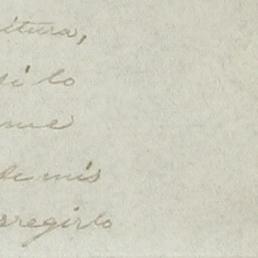 itura,
si lo
me
de mis
rregirlo